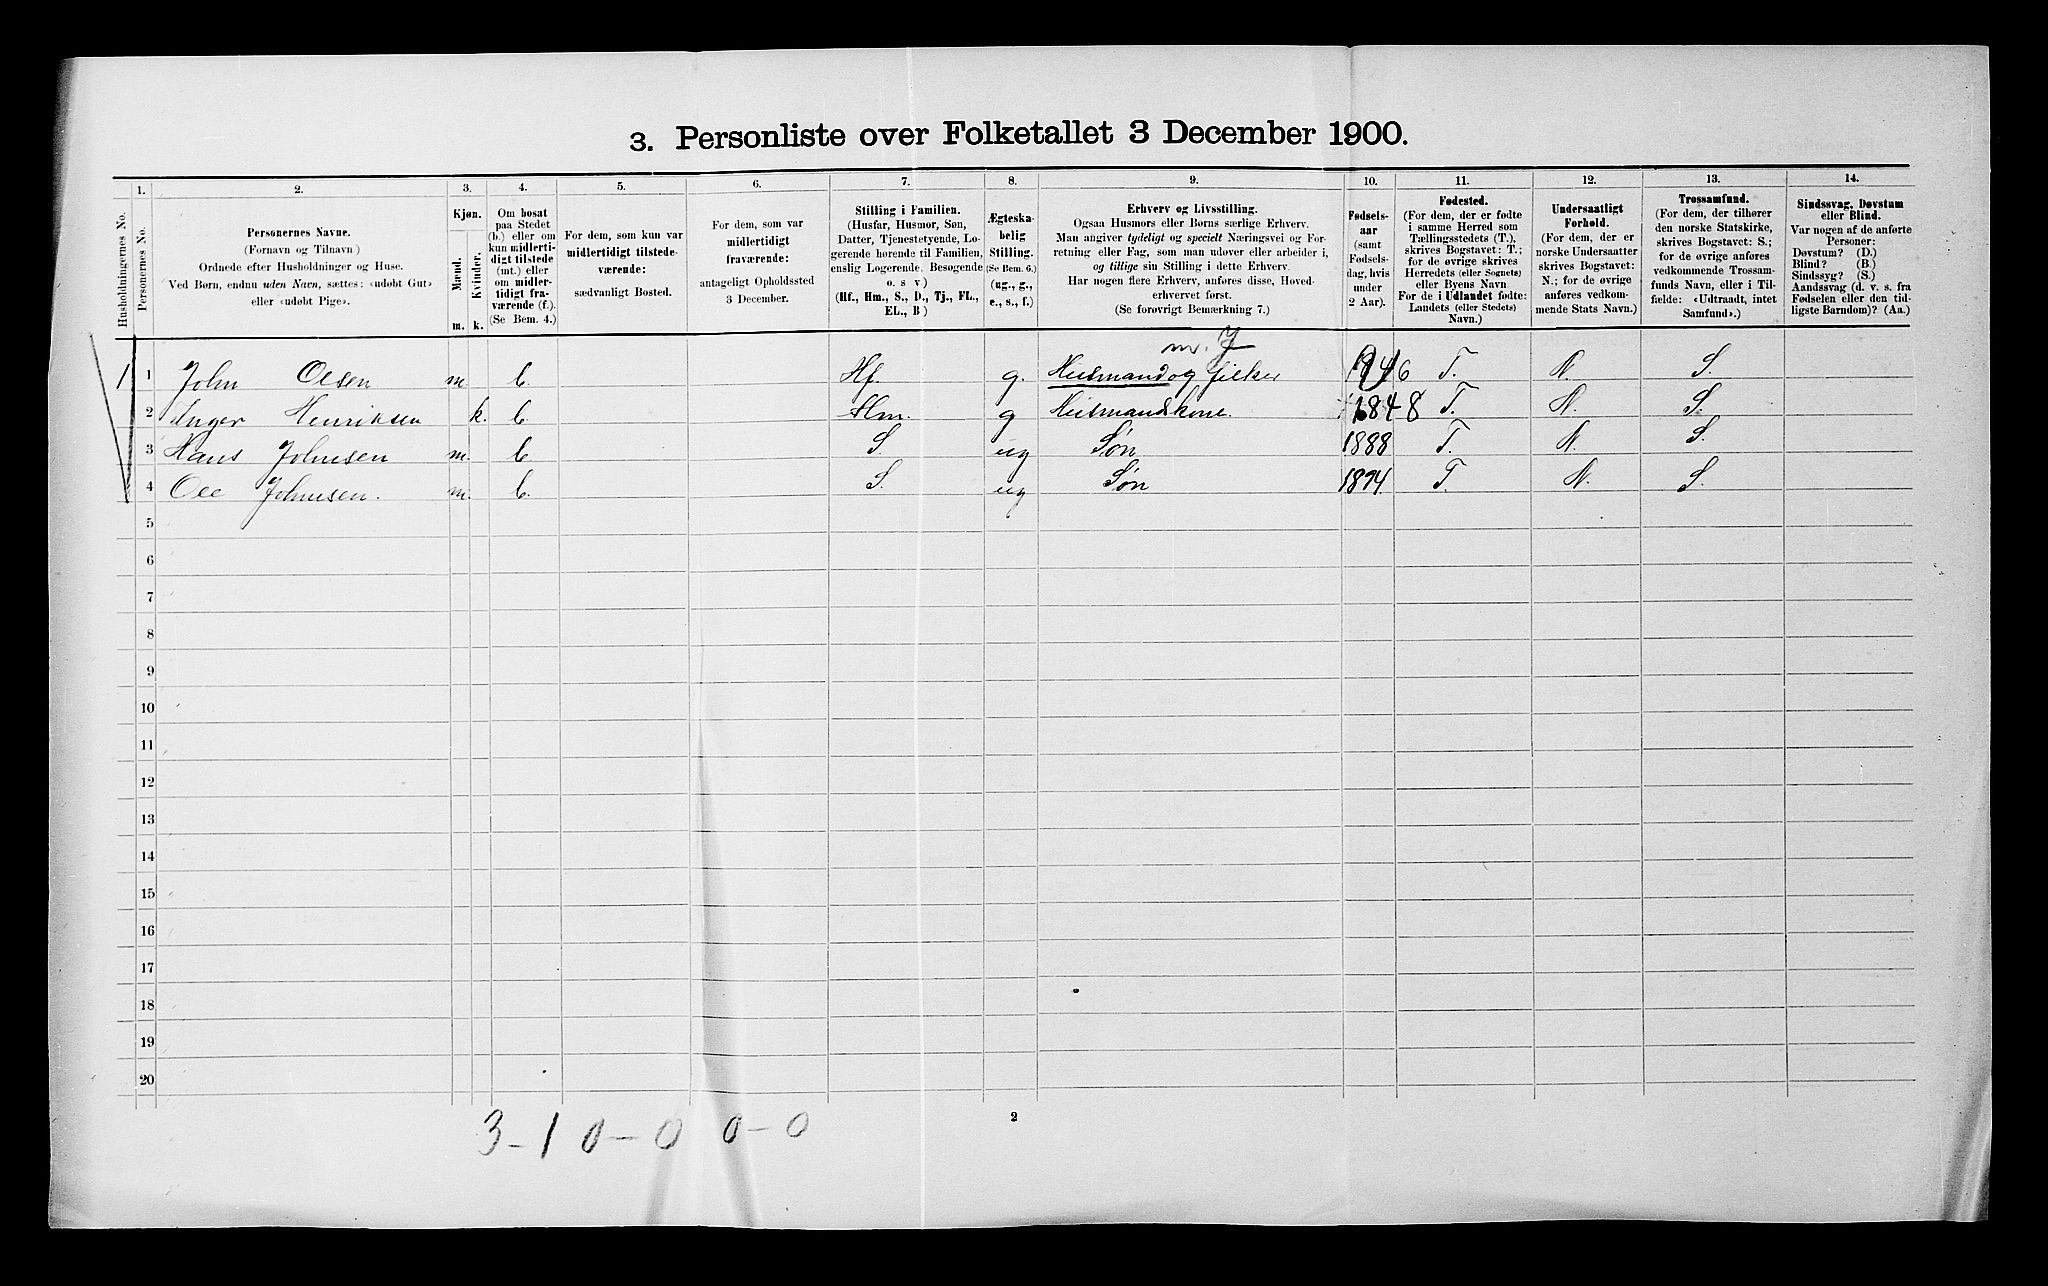 3. Personliste over Folketallet 3 December 1900.
1. 2. 3. 4. 5. 6. 7. 8. 9. 10. 11. 12. 13. 14.
Husholdningernes No.
Personernes No.
Personernes Navne.
(Fornavn og Tilnavn)
Ordnede efter Husholdninger og Huse.
Ved Børn, endnu uden Navn, sættes: «udøbt Gut»
eller «udøbt Pige».
Kjøn.
Mænd.
Kvinder.
m. k.
Om bosat
paa Stedet
(b.) eller om
kun midlerti-
digt tilstede
(mt.) eller
om midler-
tidigt fra-
værende (f.).
(Se Bem. 4.)
For dem, som kun var
midlertidigt tilstede-
værende:
sædvanligt Bosted.
For dem, som var
midlertidigt
fraværende:
antageligt Opholdssted
3 December.
Stilling i Familien.
(Husfar, Husmor, Søn,
Datter, Tjenestetyende, Lo-
gerende hørende til Familien,
enslig Logerende, Besøgende
o. s v)
(Hf., Hm., S., D., Tj., FL.,
EL., B)
Ægteska-
belig
Stilling.
(Se Bem. 6.)
(ug., g.,
e., s., f.)
Erhverv og Livsstilling.
Ogsaa Husmors eller Børns særlige Erhverv.
Man angiver tydeligt og specielt Næringsvei og For-
retning eller Fag, som man udøver eller arbeider i,
og tillige sin Stilling i dette Erhverv.
Har nogen flere Erhverv, anføres disse, Hoved-
erhvervet først.
(Se forøvrigt Bemærkning 7.)
Fødsels-
aar
(samt
Fødsels-
dag, hvis
under
2 Aar).
Fødested.
(For dem, der er fødte
i samme Herred som
Tællingsstedets (T.),
skrives Bogstavet: T.;
for de øvrige skrives
Herredets (eller Sognets)
eller Byens Navn
For de i Udlandet fødte:
Landets (eller Stedets)
Navn.)
Undersaatligt
Forhold.
(For dem, der er
norske Undersaatter
skrives Bogstavet:
N.; for de øvrige
anføres vedkom-
mende Stats Navn.)
Trossamfund.
(For dem, der tilhører
den norske Statskirke,
skrives Bogstavet: S.;
for de øvrige anføres
vedkommende Trossam-
funds Navn, eller i Til-
fælde: «Udtraadt, intet
Samfund».)
Sindssvag, Døvstum
eller Blind.
Var nogen af de anførte
Personer:
Døvstum? (D.)
Blind? (B.)
Sindssyg? (S.)
Aandssvag (d. v. s. fra
Fødselen eller den tid-
ligste Barndom)? (Aa.)
1 1 John Olsen m. b. Hf. g. Husmand og fisker 1846 T. N. S.
2 Inger Henriksen k. b Hm. g Husmandskone. 1848 T. N. S.
3 Hans Johnsen m. b. S. ug Søn 1888 T. N. S.
4 Ole Johnsen. m. b. S. ug Søn 1894. T. N. S.
5
6
7
8
9
10
11
12
13
14
15
16
17
18
19
20
3-1 0-0 0-0
2